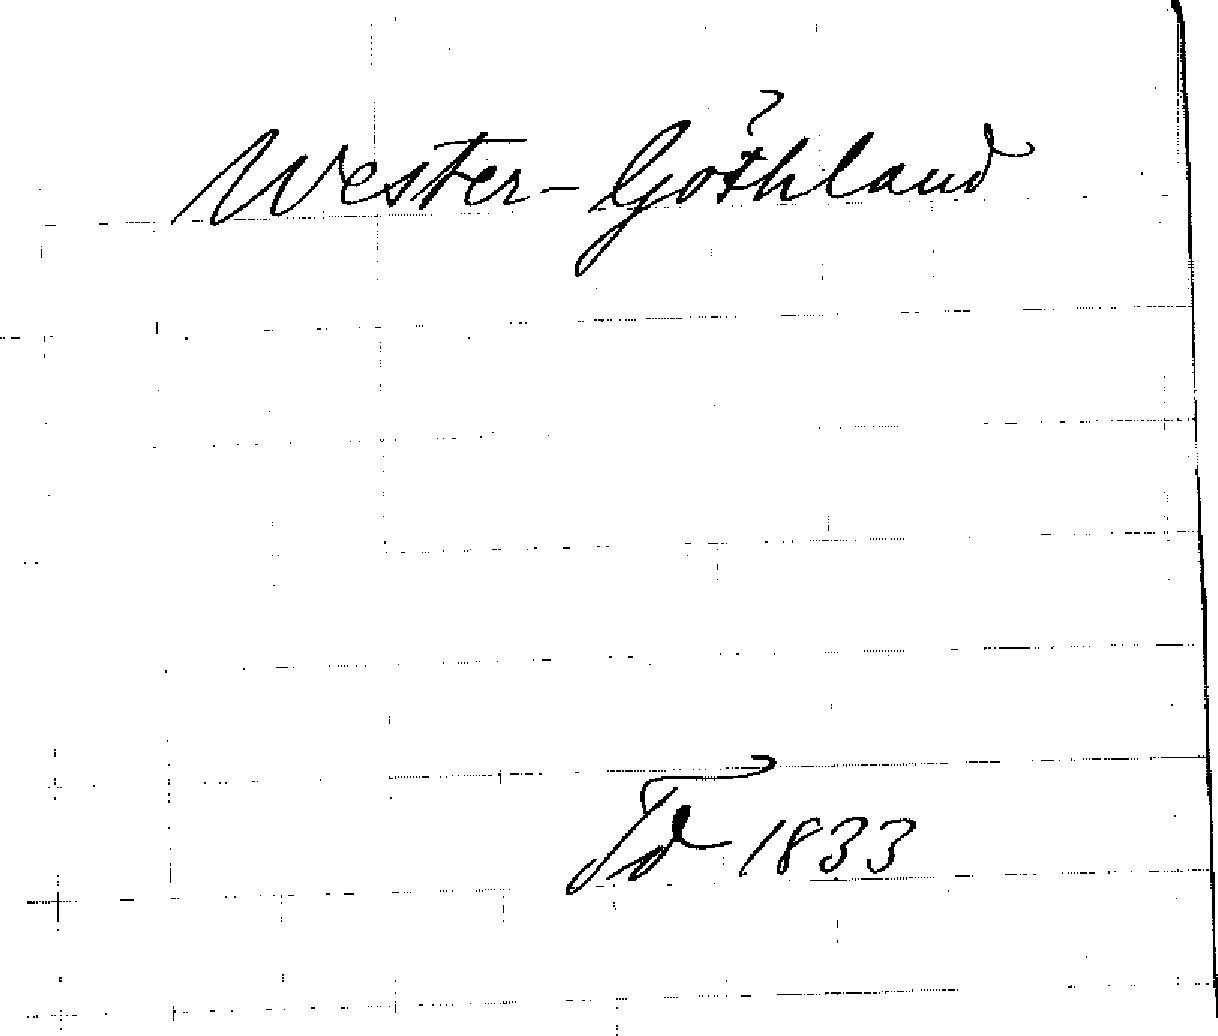 Wester-Göthland
Td 1833